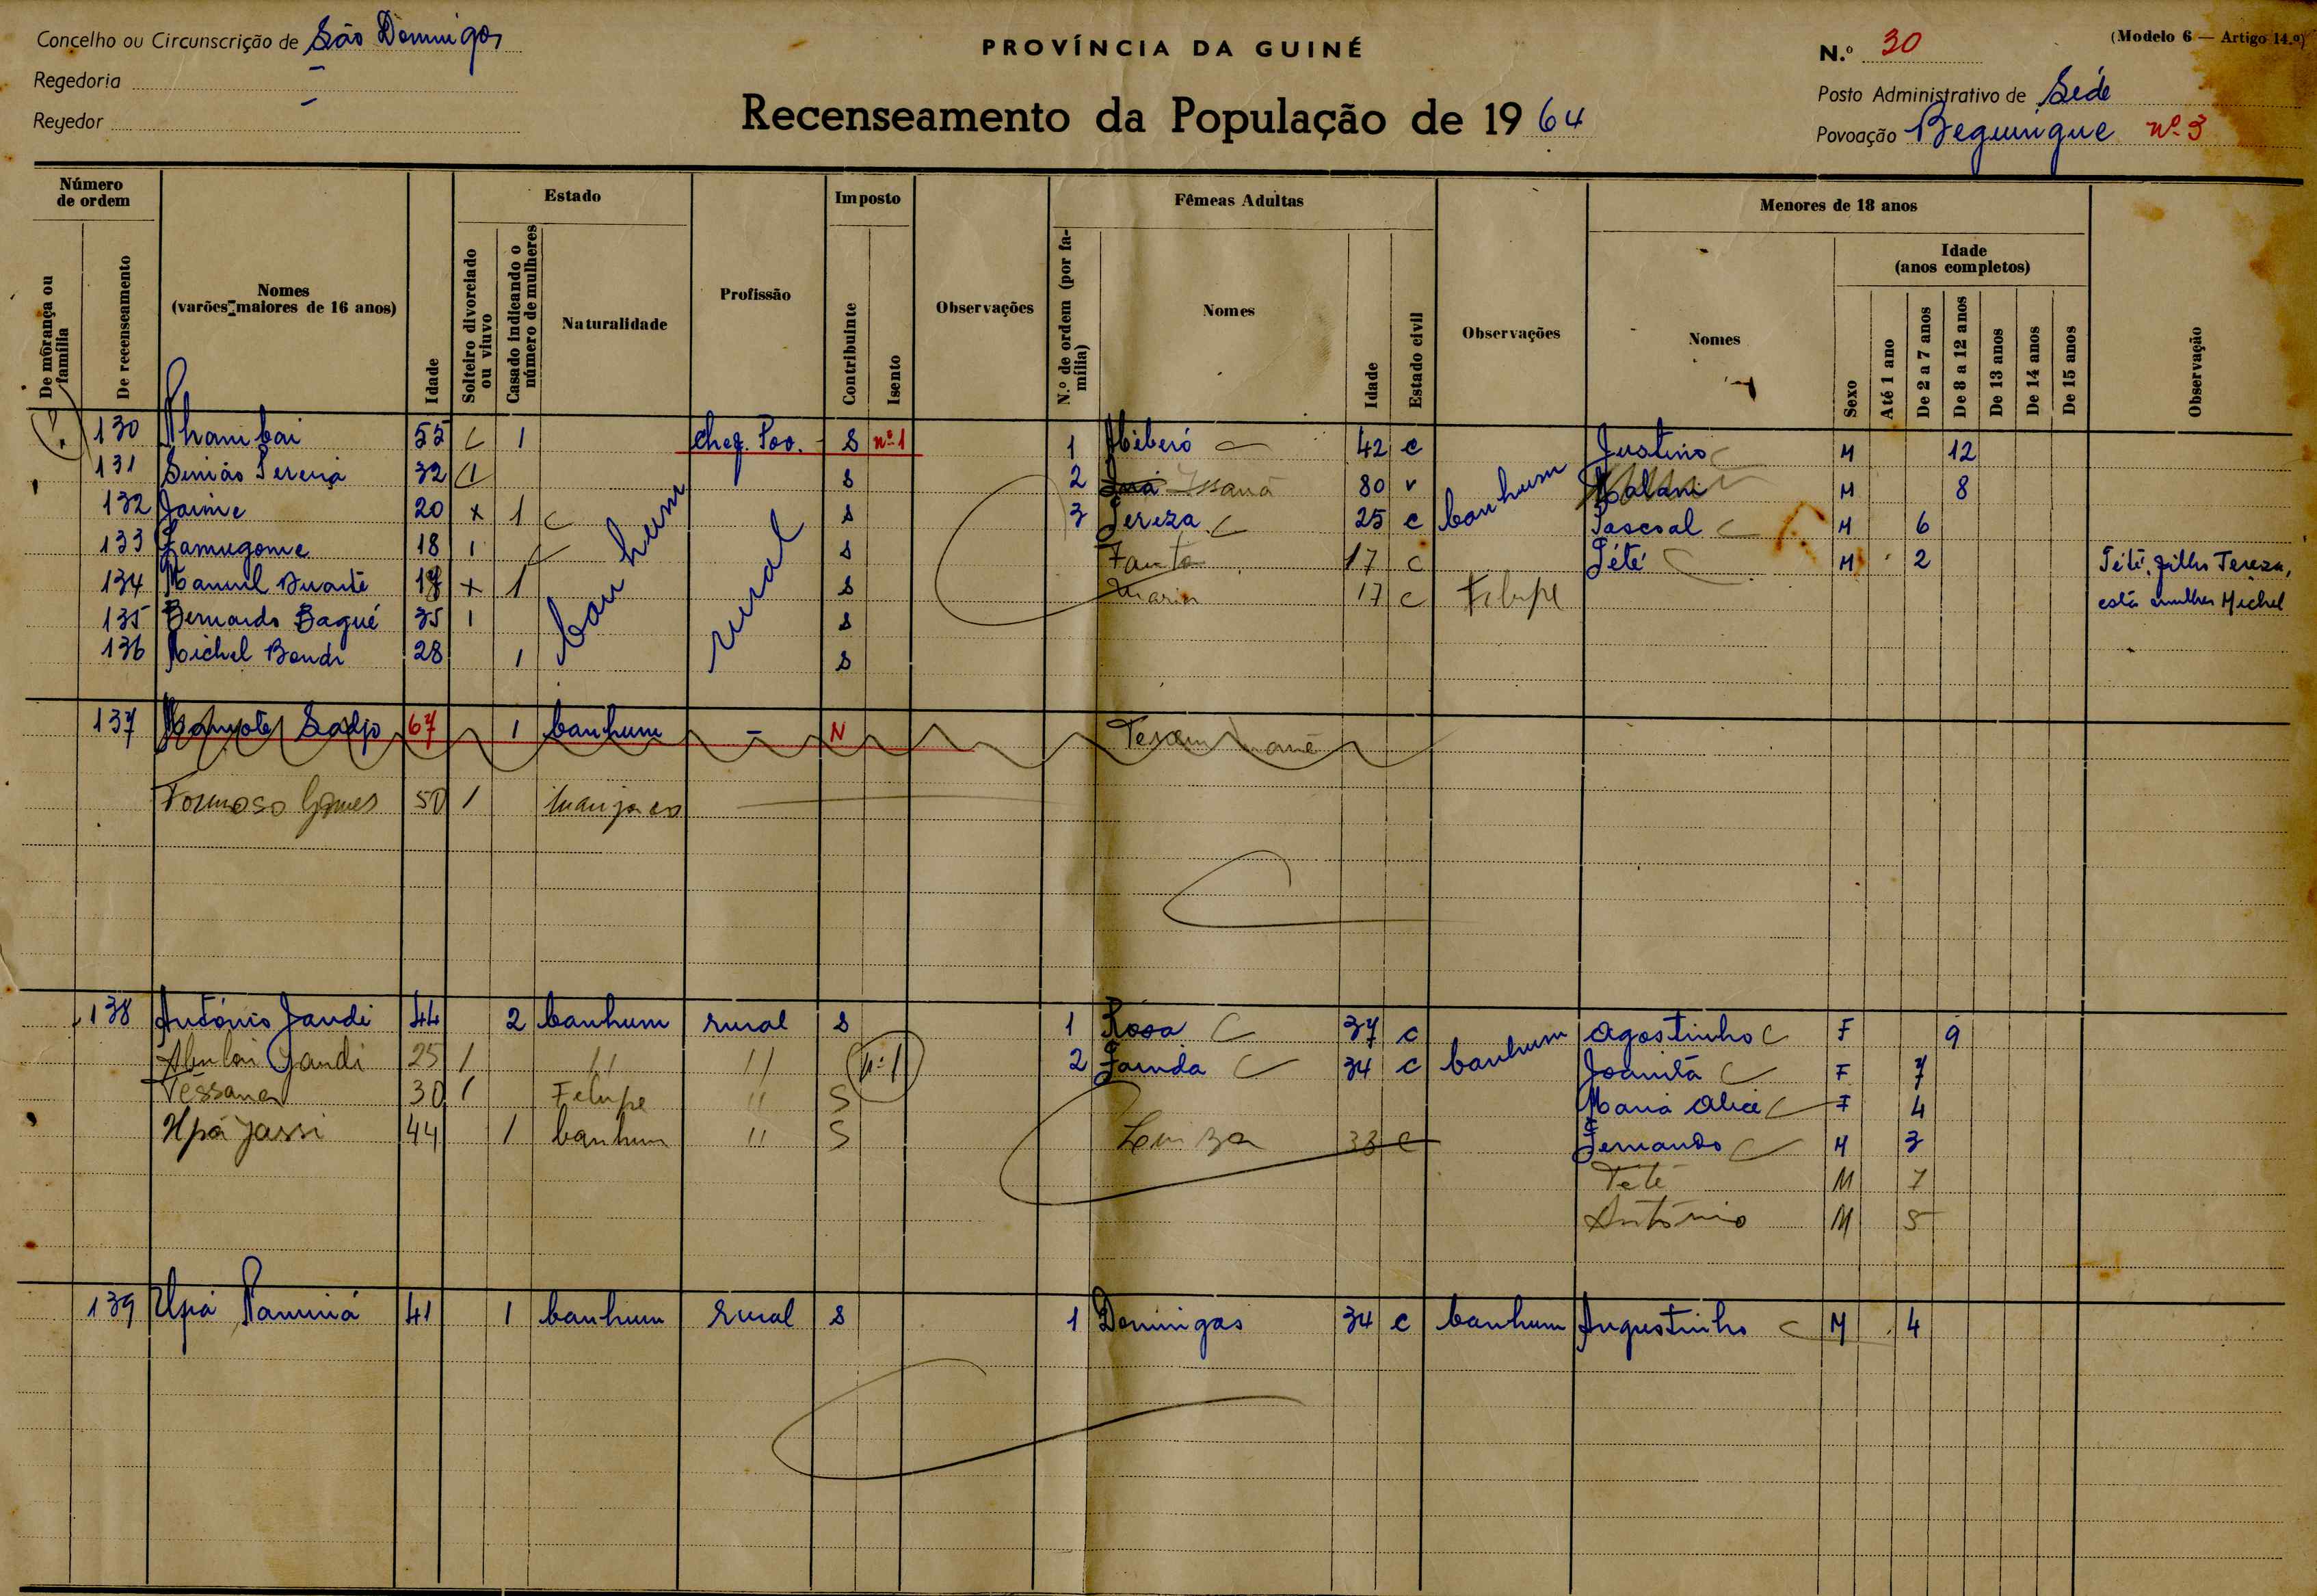 Concelho ou Circunscrição de São Domingos
Regedoria -
Regedor -
PROVÍNCIA DA GUINÉ
Recenseamento da População de 1964
(Modelo 6 — Artigo 14.º)
N.º 30
Posto Administrativo de Séde
Povoação nº 3
Número de ordem
De morança ou família
De recenseamento
Nomes (varões maiores de 16 anos)
Idade
Estado
Solteiro divorciado ou viuvo
Casado indicando o número de mulheres
Naturalidade
Profissão
Imposto
Contribuinte
Isento
Observações
Fêmeas Adultas
N.º de ordem (por família)
Nomes
Idade
Estado civil
Observações
Menores de 18 anos
Nomes
Sexo
Idade (anos completos)
Até 1 ano
De 2 a 7 anos
De 8 a 12 anos
De 13 anos
De 14 anos
De 15 anos
Observação
130 55 1 chef. Pov. S nº 1 1 42 c Justino M 12
131 Simião Pereira 32 1 S 2 80 v M 8
132 Jaime 20 x 1 S 3 Tereza 25 c banhum Pascoal M 6
133 18 1 S 17 c Tété M 2 Tété, filho Tereza,
134 Manuel Duarte x 1 banhum rural S Maria 17 c Felupe está mulher Michel
135 Bernardo Bagué 35 1 S
136 Michel 28 1 S
137 67 1 banhum - N
Formoso Gomes 50 1 manjaco
138 António Jandi 44 2 banhum rural S 1 Rosa 37 c banhum Agostinho F 9
Jandi 25 1 " " nº 1 2 34 c Joanitá F 7
30 1 Felupe " S Maria Alice F 4
Upá Jassi 44 1 banhum " S 33 c Fernando M 3
Tété M 7
António M 5
139 Upá 41 1 banhum rural S 1 Domingas 34 c banhum Augustinho M 4